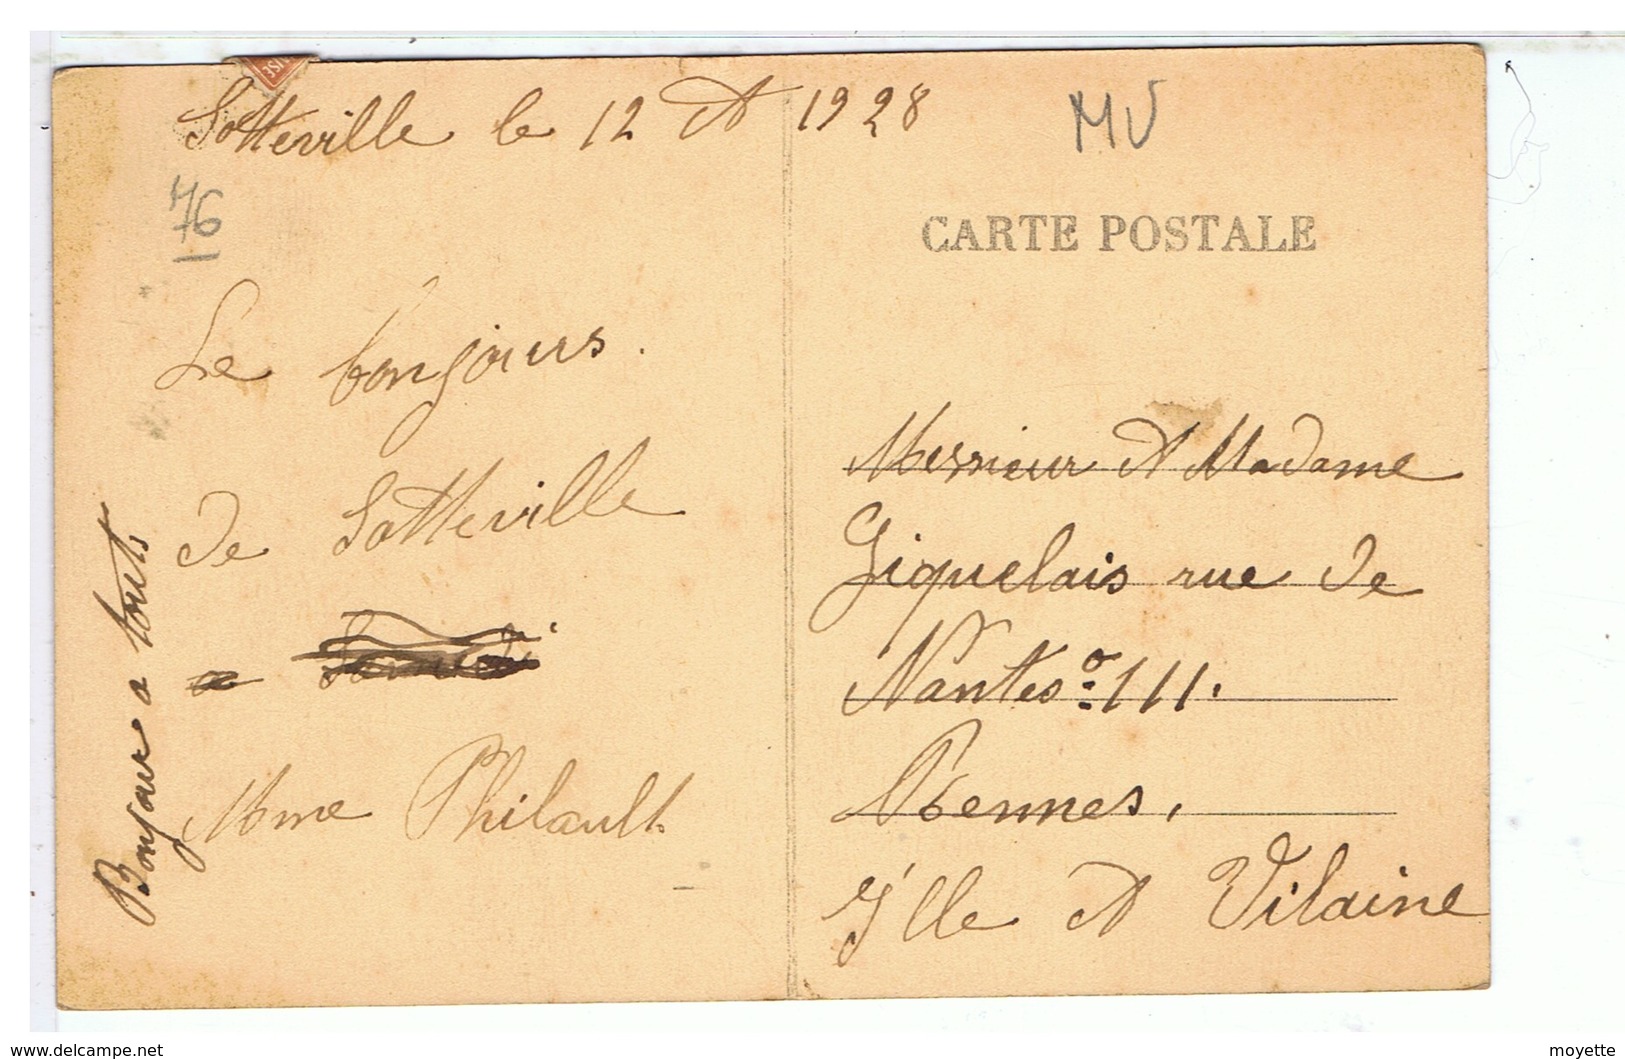 Sotteville le 12 A 1928
MV
76
CARTE POSTALE
Le bonjours.
de Sotteville
Mme Philault
Bonjour a touts
Messieur et Madame
Giquelais rue de
Nantes º 111.
Rennes.
J'lle et Vilaine
www.delcampe.net
moyette